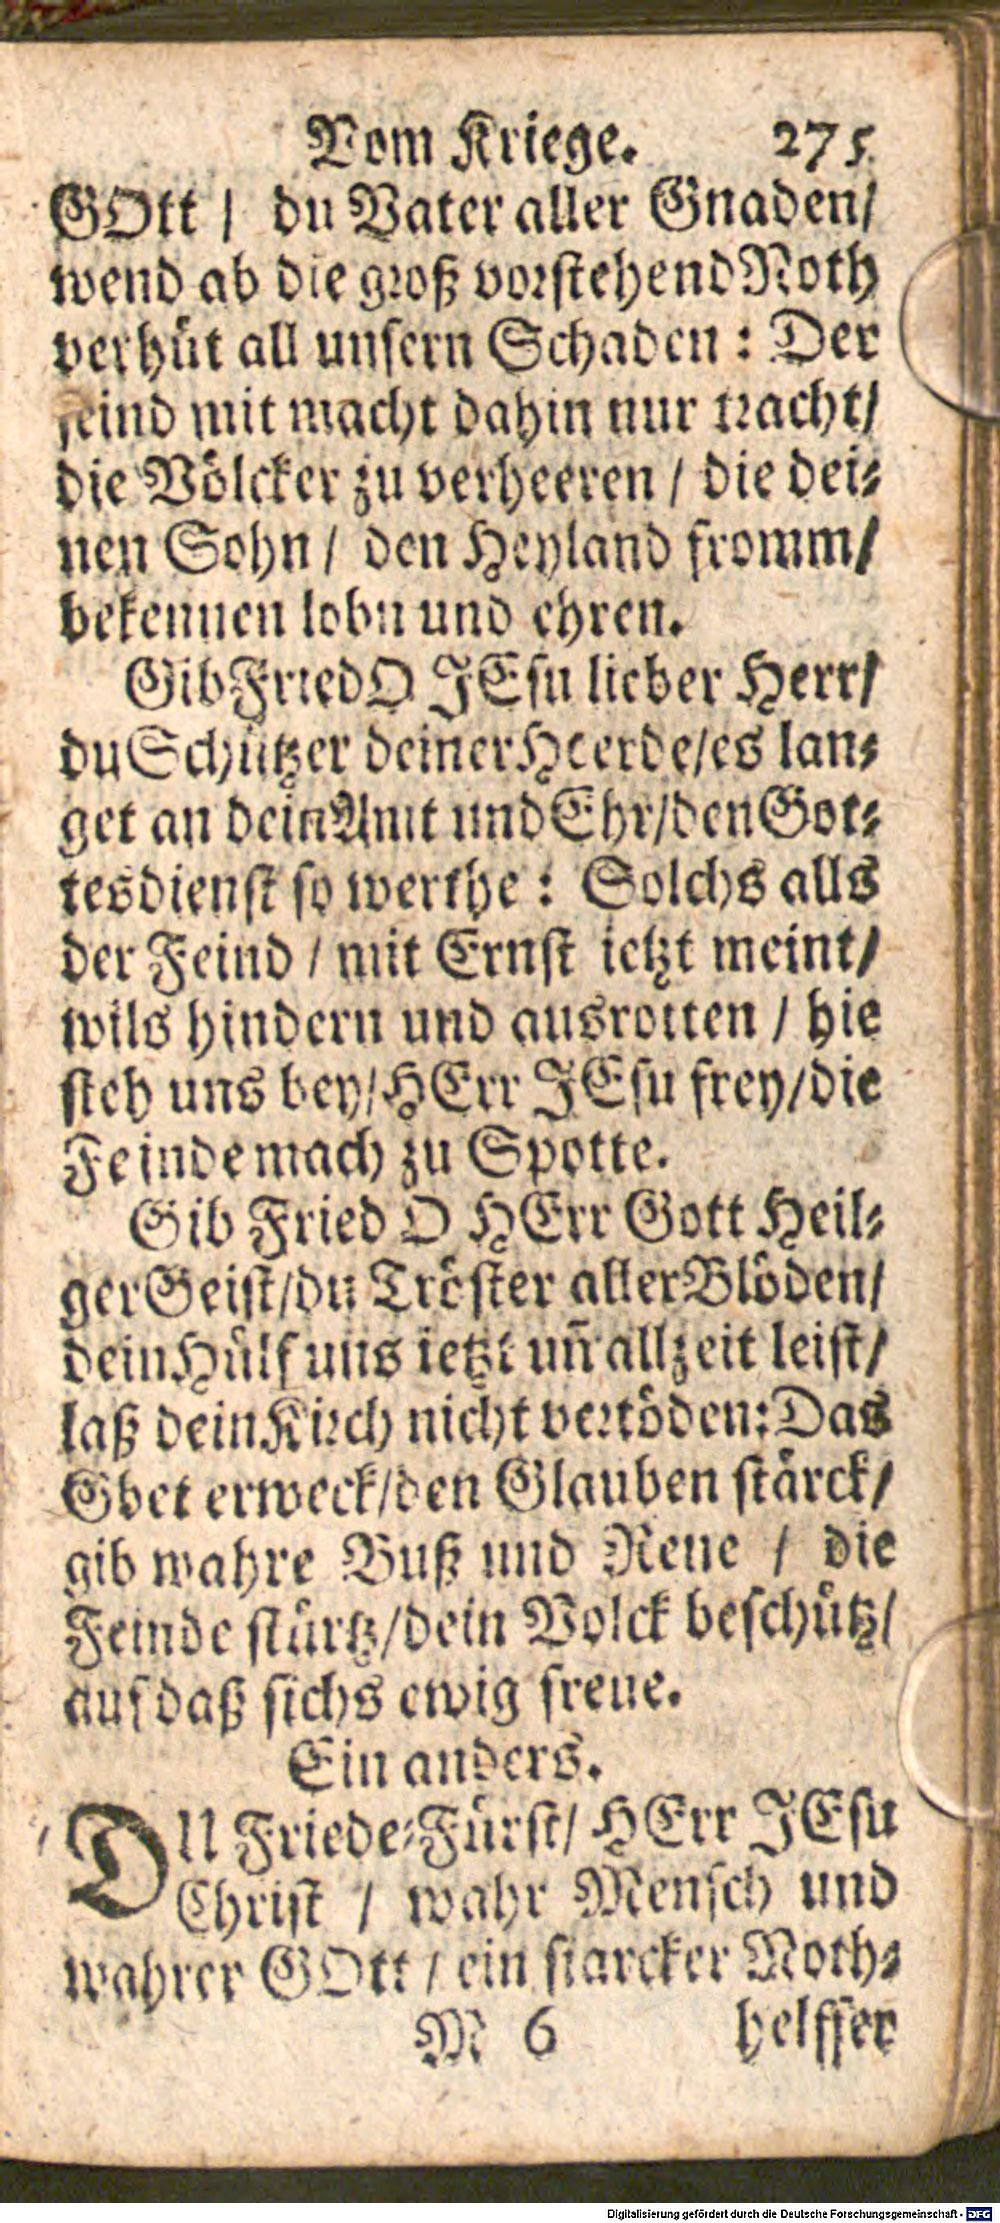 Vom Kriege. 275.
GOtt / du Vater aller Gnaden/
wend ab die groß vorstehend Noth
verhüt all unsern Schaden : Der
feind mit macht dahin nur tracht/
die Völcker zu verheeren / die dei-
nen Sohn / den Heyland fromm/
bekennen lobn und ehren.
Gib Fried O JEsu lieber Herr/
du Schützer deiner Heerde/es lan-
get an dein Amt und Ehr/den Got-
tesdienst so werthe : Solchs alls
der Feind / mit Ernst ietzt meint/
wils hindern und ausrotten / hie
steh uns bey/HErr JEsu frey/die
Feinde mach zu Spotte.
Gib Fried O HErr Gott Heil-
ger Geist/du Tröster aller Blöden/
dein Hülf uns ietzt uñ allzeit leist/
laß dein Kirch nicht vertöden: Das
Gbet erweck/den Glauben stärck/
gib wahre Buß und Reue / die
Feinde stürtz/dein Volck beschütz/
auf daß sichs ewig freue.
Ein anders.
DU Friede-Fürst/ HErr JEsu
Christ / wahr Mensch und
wahrer GOtt / ein starcker Noth-
M 6 helffer
Digitalisierung gefördert durch die Deutsche Forschungsgemeinschaft - DFG